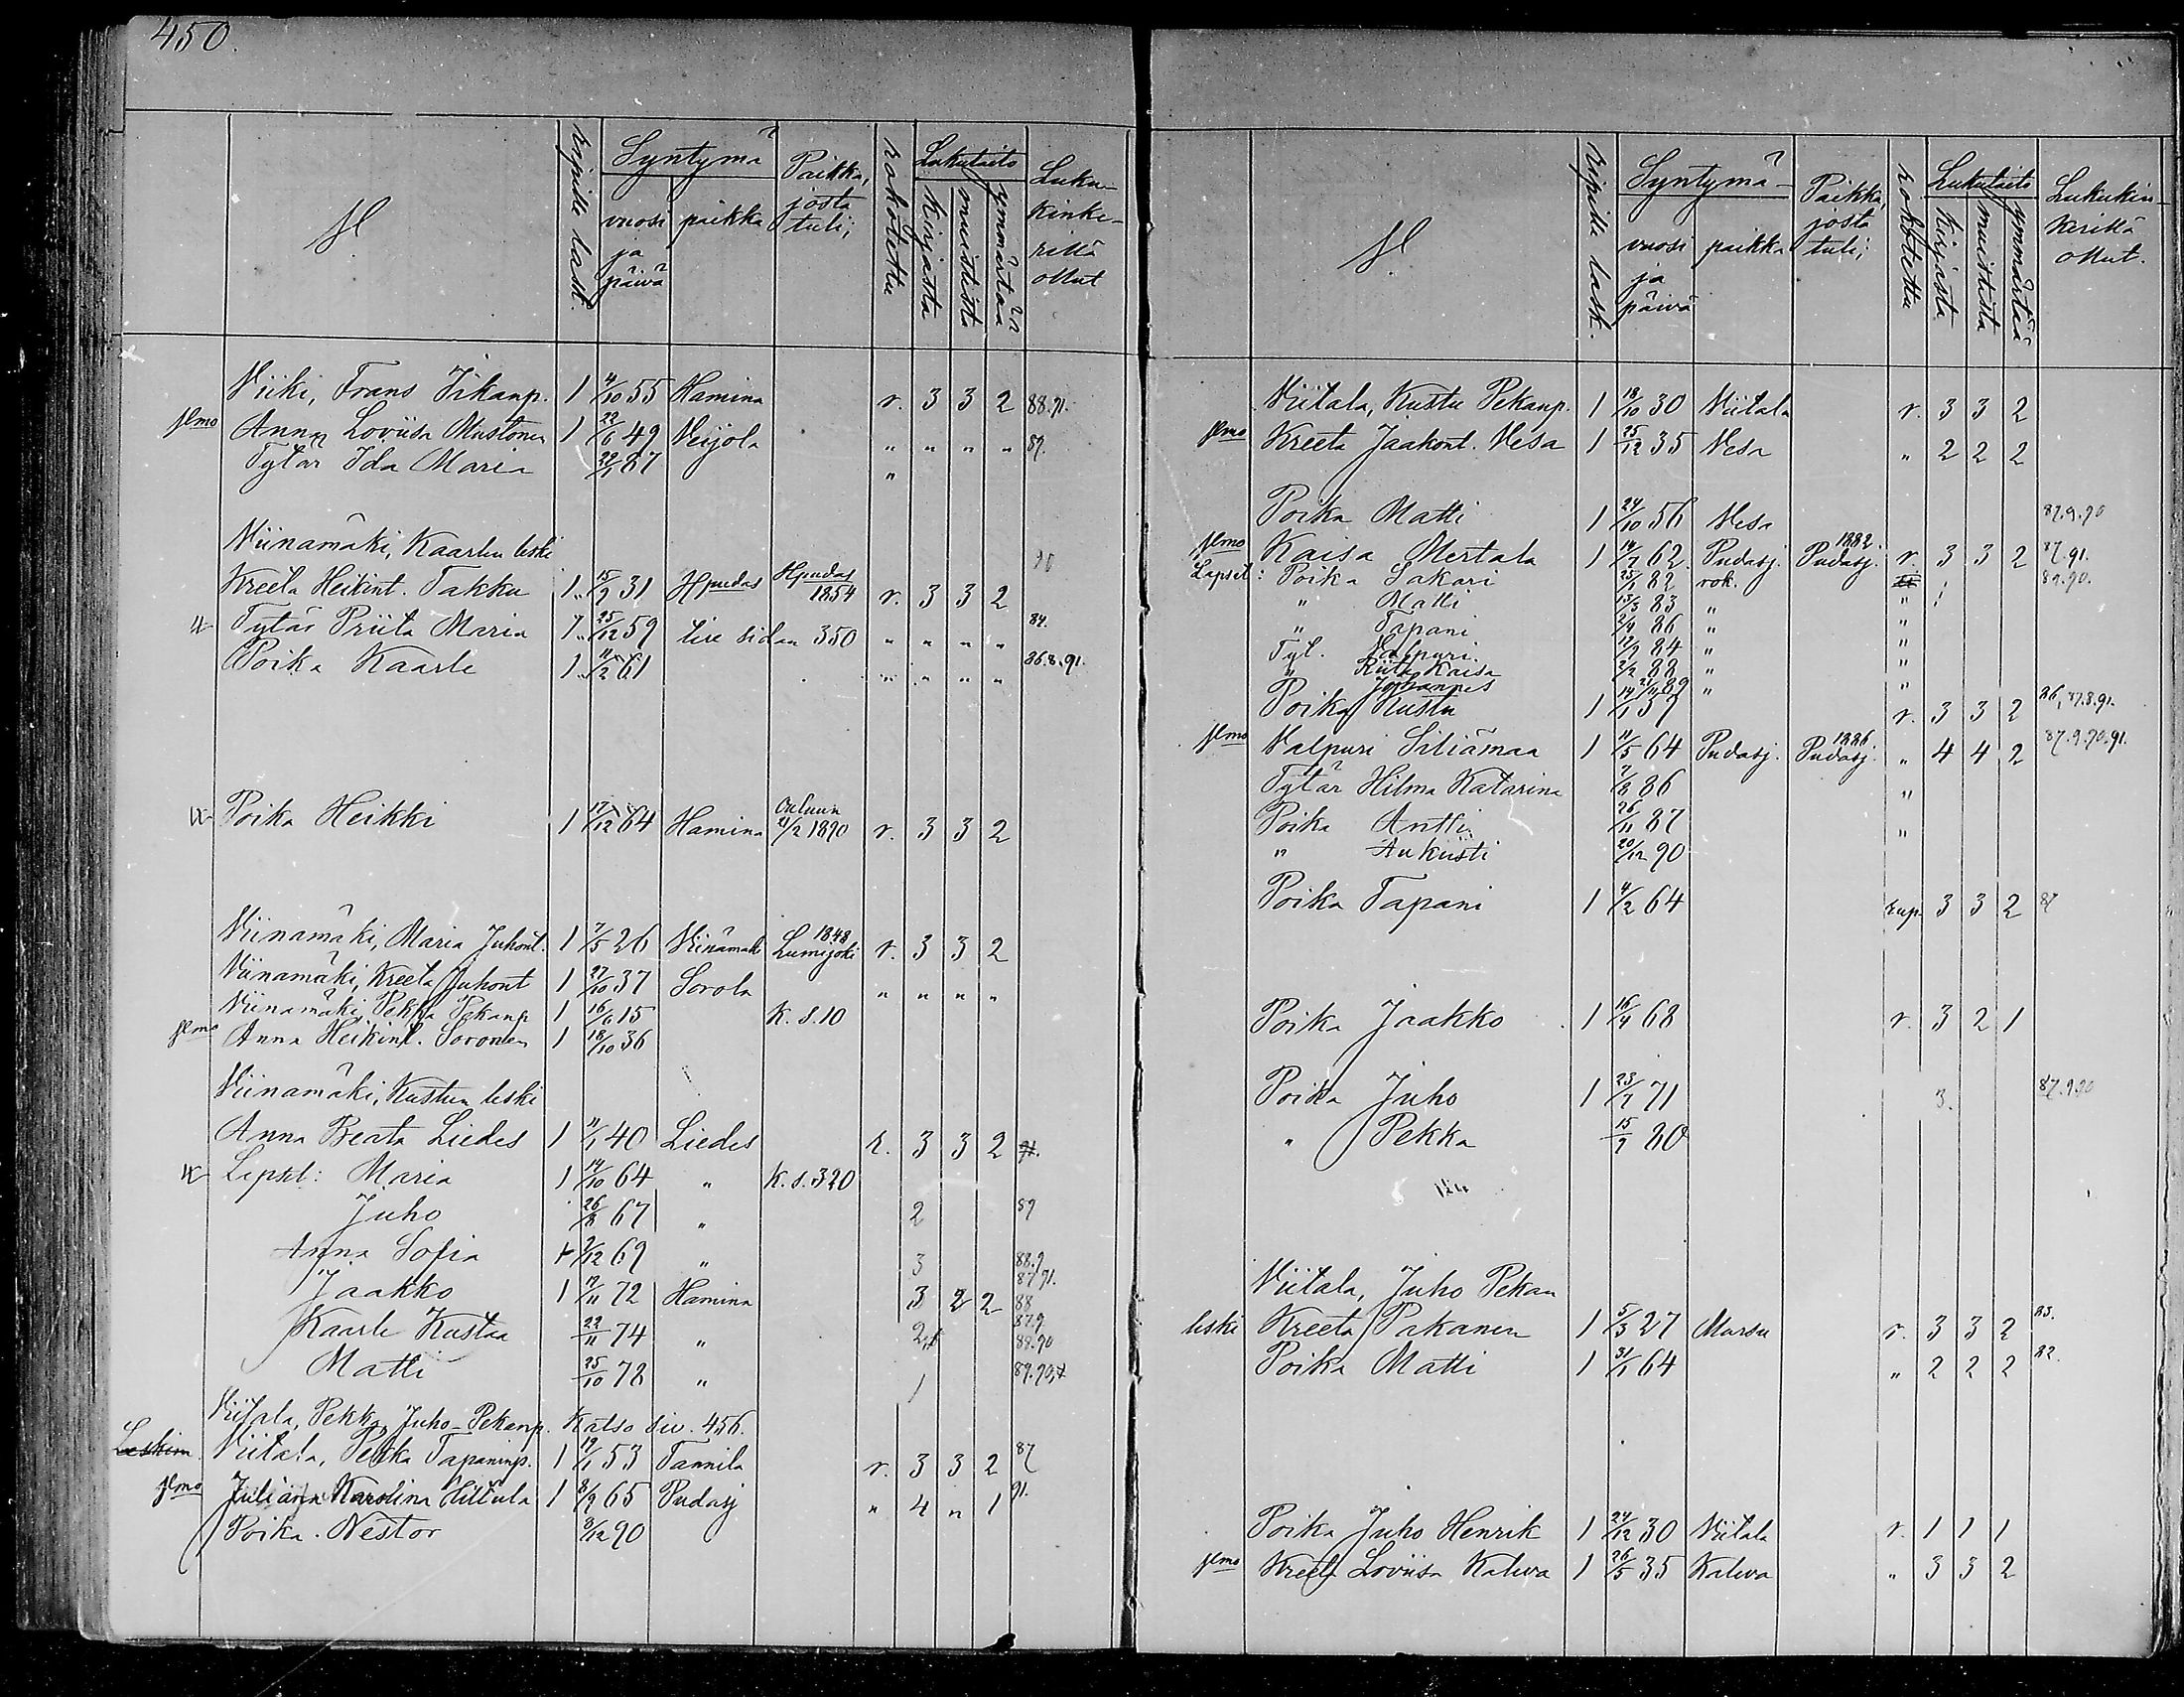 450.
ripille lask.
Syntymä
vuosi ja päivä
paikka
Paikka, josta tuli;
rokotettu
Lukutaito
kirjasta
muistista
ymmärtää
Luku-kinke-rillä ollut
Viiki, Frans Iikanp. 1 4/10 55 Hamina r. 3 3 2 88.91.
Anna Loviisa Mustonen 1 22/6 49 Veijola " " " " 89.
Tytär Ida Maria 29/1 87 "
Viinamäki, Kaarlen leski
Kreeta Heikint. Takku 1 15/9 31 Hpudas Hpudas 1854 r. 3 3 2
Tytär Priita Maria 25/12 59 tire sidan 350 " " " " 84.
Poika Kaarle 1 11/2 61 " " " " 86.8.91.
Poika Heikki 1 17/12 64 Hamina Ouluun 21/2 1890 r. 3 3 2
Viinamäki, Maria Juhont. 1 7/5 26 Viinamäki 1848 Lumijoki r. 3 3 2
Viinamäki, Kreeta Juhont 1 27/10 37 Sorola " " " "
Viinamäki, Pekka Pekanp 1 16/6 15 K. s. 10
Anna Heikint. Soronen 1 18/10 36
Viinamäki, Kustun leski
Anna Beata Liedes 1 11/1 40 Liedes r. 3 3 2
Lapset: Maria 1 14/10 64 " K. s. 320
Juho 26/8 67 " 2 89
Anna Sofia 9/12 69 " 3 88.9
Jaakko 1 17/11 72 Hamina 3 2 2 87.91. 88
Kaarle Kustaa 22/11 74 " 2 87.9 89.90
Matti 25/10 78 " 1 89.90
Viitala, Pekka Juho-Pekanp. Katso siv. 456.
Leskim. Viitala, Pekka Tapaninp. 1 19/1 53 Tannila r. 3 3 2 87
Juliana Karolina Hiltula 1 8/9 65 Pudasj " 4 " 1 91.
Poika. Nestor 8/12 90
ripille lask.
Syntymä-
vuosi ja päivä
paikka
Paikka, josta tuli;
rokotettu
Lukutaito
kirjasta
muistista
ymmärtää
Lukukin-kerillä ollut.
Viitala, Kustu Pekanp. 1 18/10 30 Viitala r. 3 3 2
Kreeta Jaakont. Vesa 1 25/12 35 Vesa " 2 2 2
Poika Matti 1 24/10 56 Vesa 87.9.90
Kaisa Mertala 1 14/7 62. Pudasj. 1882. Pudasj. r. 3 3 2 87.91.
Lapset: Poika Sakari 82 rok. 89.90.
" Matti 13/3 83 " "
" Tapani 2/4 86 " "
Tyt. Valpuri. 12/9 84 " "
" Riita Kaisa 2/2 88 " "
Johannes 89 " "
Poika Kustu 1 14/1 59 r. 3 3 2 86, 87.8.91.
Valpuri Siliämaa 1 11/5 64 Pudasj. 1886 Pudasj. " 4 4 2 87.9.90.91.
Tytär Hilma Katarina 7/8 86 "
Poika Antti 26/11 87 "
" Aukusti 20/12 90
Poika Tapani 1 4/2 64 rup. 3 3 2 87
Poika Jaakko 1 16/4 68 r. 3 2 1
Poika Juho 1 23/7 71 3. 87.9.90
" Pekka 15/9 80
Viitala, Juho Pekan
leski Kreeta Pakanen 1 5/3 27 Marsu r. 3 3 2 83.
Poika Matti 1 31/1 64 " 2 2 2 82.
Poika Juho Henrik 1 24/12 30 Viitala r. 1 1 1
Kreeta Loviisa Kaleva 1 26/5 35 Kaleva " 3 3 2